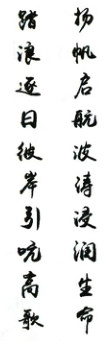 扬帆启航波涛浸润生命
踏浪逐日彼岸引吭高歌